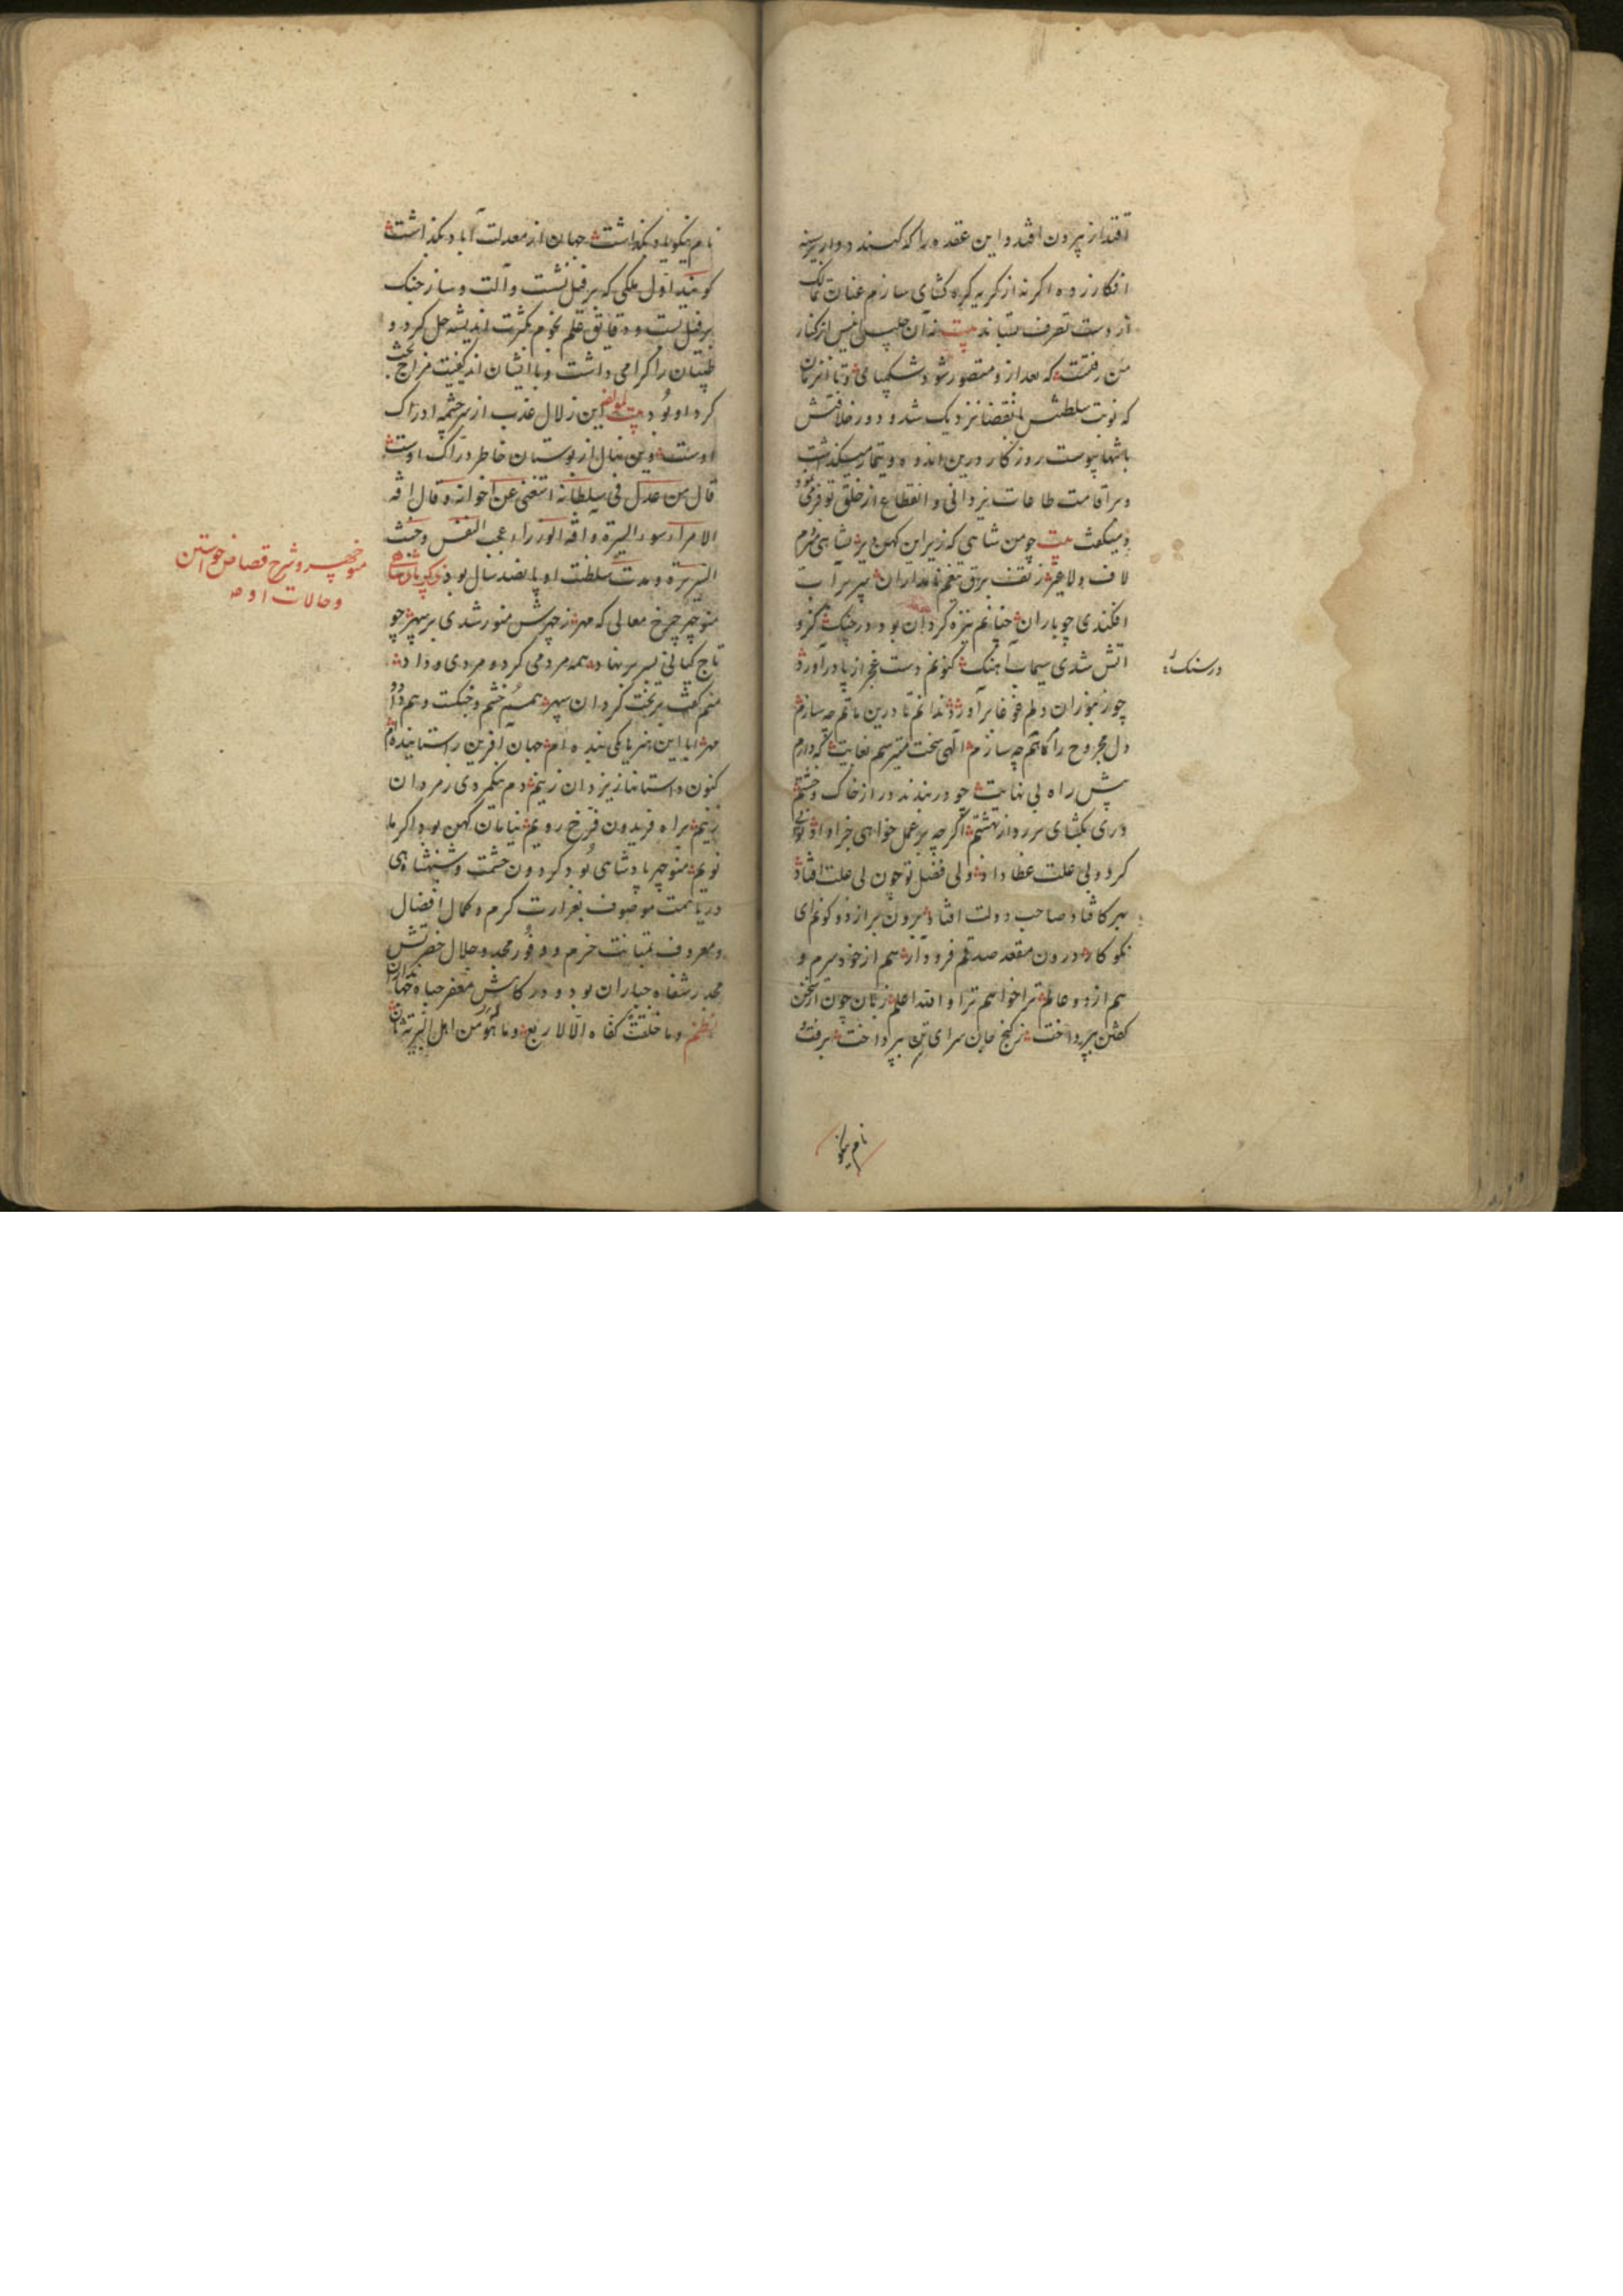 اقتدار بیرون افتد و این عقده را که کمند دوار برسینه
افکار زده اگر نه از گریه گره کشای سازم عنان تمالک
از دست تصرف بستاند بیت زان جلیس انیس از کنار
من رفتست که بعد از و متصور شود شکیبایی و تا آن زمان
که نوبت سلطنتش بانقضا نزدیک شد و دور خلافتش
بانتها پیوست روزگار درین اندوه و تیمار میگذشت
و بر اقامت طاعات یزدانی و انقطاع از خلق توفر می نمود
و میگفت بیت چو من شاهی که زیر این کهن دیر بشاهی میزدم
لاف ولاغیر ز تف برق تیغم نامداران سپر بر آب
افکندی چو باران چنانم نیزه گردان بود در جنک کزو
آتش شدی سیماب آهنک کنونم دست عجز از پا درآورد
چو زنبوران دلم غوغا برآورد ندانم تا درین ماتم چه سازم
دل مجروح را کاتم چه سازم الهی سخت میترسم بغایت که دارم
پیش راه بی نهایت چو در بندند در از خاک و خشتم
دری بکشای بر رو از بهشتم اگر چه بر عمل خواهی جزا داد تویی
کز و دبی علت عطا داد ولی فضل تو چون بی علت افتاد
بهر کافتاد صاحب دولت افتاد برون بر از دو کونم ای
نکو کار درون مقعد صدقم فرود آر هم از خود بیزم و
هم از دو عالم ترا خواهم ترا والله اعلم زبان چون از سخن
گفتن بپرداخت ز گنج جان سرای تن بپرداخت برفت
در سنک
نام نیکو
نام نیکو یادگذاشت جهان از معدلت آباد بگذاشت
گویند اول ملکی که بر فیل نشست و آلت و ساز جنک
بر فیل بست و دقایق علم نجوم بکثرت اندیشه حل کرد و
طبیبان را گرامی داشت و با ایشان از کیفیت مزاج بحث
کرد او بود بیت لمؤلفه این زلال عذب از سرچشمه ادراک
اوست وین نهال از بوستان خاطر دراک اوست
قال من عدل فی سلطانه استغنی عن اخوانه و قال آفة
الامرآء سوء السیرة و آفة الوزراء عجب النفس و خبث
السریرة و مدت سلطنت او پانصد سال بود ذکر پادشاهی
منوچهر و شرح قصاص خواستن
و حالات او
منوچهر چرخ معالی که مهر ز چهرش منور شدی بر سپهر چو
تاج کیانی بسر بر نهاد همه مردمی کرد و مردی و داد
منم گفت بر تخت گردان سپهر همم خشم و جنگست و هم داد و
مهر ابا این هنر یا یکی بنده ام جهان آفرین را ستاینده ام
کنون داستانها ز یزدان زنیم دم نیکمردی ز مردان
زنیم براه فریدون فرخ رویم نیامان کهن بود اگر ما
نویم منوچهر پادشاهی بود گردون حشمت و شهنشاهی
دریا همت موصوف بغزارت کرم و کمال افضال
و معروف بمتانت حزم و وفور مجد و جلال حضرتش
مخدر شفاه جباران بود و درگاهش معفر جباه جهانداران
نظم و ما خلقت کفاه الا لاربع و ما هو من اهل البریة ثان